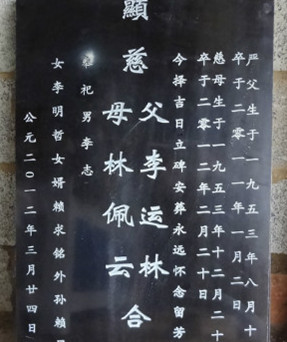 严父生于一九五三年八月十
卒于二零一一年一月二日
慈母生于一九五三年十二月二十
卒于二零一二年二月二十日
今择吉日立碑安葬永远怀念留芳
顯慈父李运林
母林佩云合
奉祀男李志
女李明哲女婿賴求銘外孙賴
公元二〇一二年三月廿四日